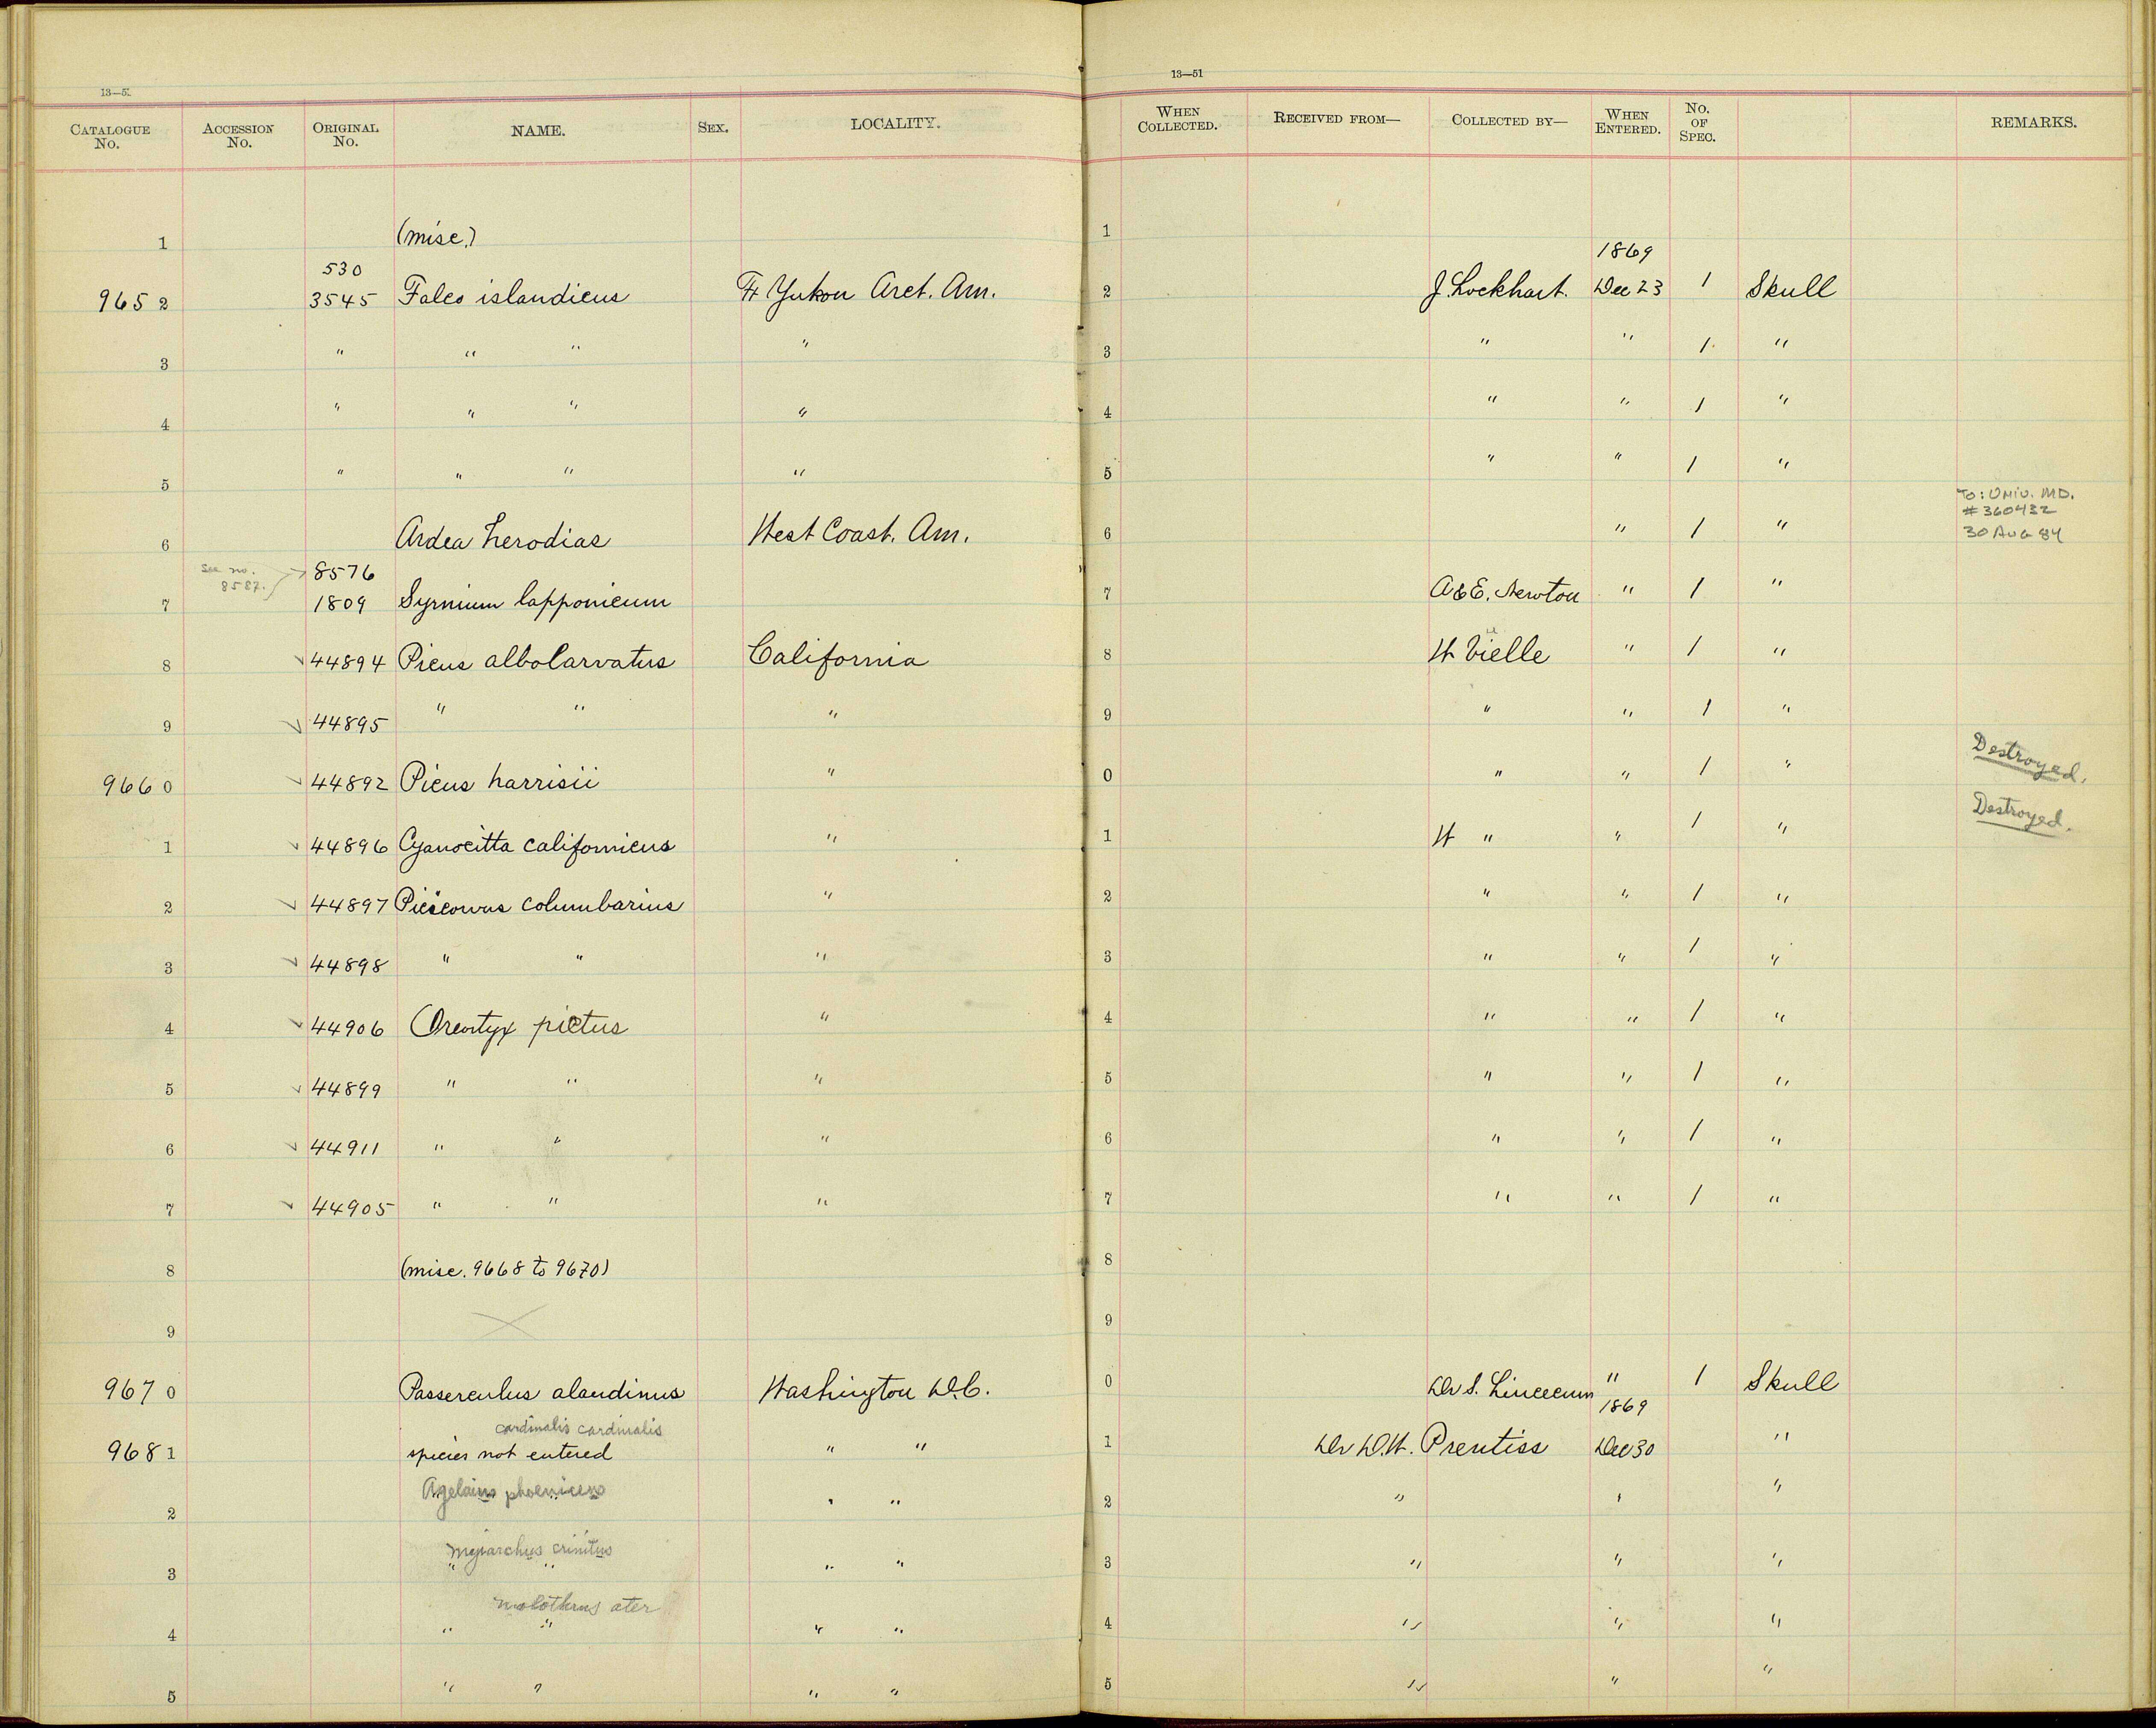 13—5
13—51
CATALOGUE No. ACCESSION No. ORIGINAL No. NAME. SEX. LOCALITY. WHEN COLLECTED. RECEIVED FROM— COLLECTED BY— WHEN ENTERED. No. OF SPEC. REMARKS.
1 (misc.) 1
530 1869
9652 3545 Falco islandicus Ft Yukon Arct. Am. 2 J. Lockhart. Dec 23 1 Skull
3 " " " " 3 " " 1 "
4 " " " " 4 " " 1 "
5 " " " " 5 " " 1 "
6 Ardea herodias West Coast. Am. 6 " 1 " To: Univ. MD. #360432 30 Aug 84
see no. 8587. 8576
7 1809 Syrnium lapponicum 7 A & E. Newton " 1 "
8 44894 Picus albolarvatus California 8 H Vielle " 1 "
9 44895 " " " 9 " " 1 "
9660 44892 Picus harrisii " 0 " " 1 " Destroyed.
1 44896 Cyanocitta californicus " 1 H " " 1 " Destroyed.
2 44897 Picicorvus columbarius " 2 " " 1 "
3 44898 " " " 3 " " 1 "
4 44906 Oreortyx pictus " 4 " " 1 "
5 44899 " " " 5 " " 1 "
6 44911 " " " 6 " " 1 "
7 44905 " " " 7 " " 1 "
8 (misc. 9668 to 9670) 8
9 9
9670 Passerculus alaudinus Washington D.C. 0 Dr S. Lincecum " 1 Skull
cardinalis cardinalis 1869
9681 species not entered " " 1 Dr D.W. Prentiss Dec 30 "
Agelaius phoeniceus
2 " " 2 " " "
Myiarchus crinitus
3 " " " " 3 " " "
Molothrus ater
4 " " " " 4 " " "
5 " " " " 5 " " "